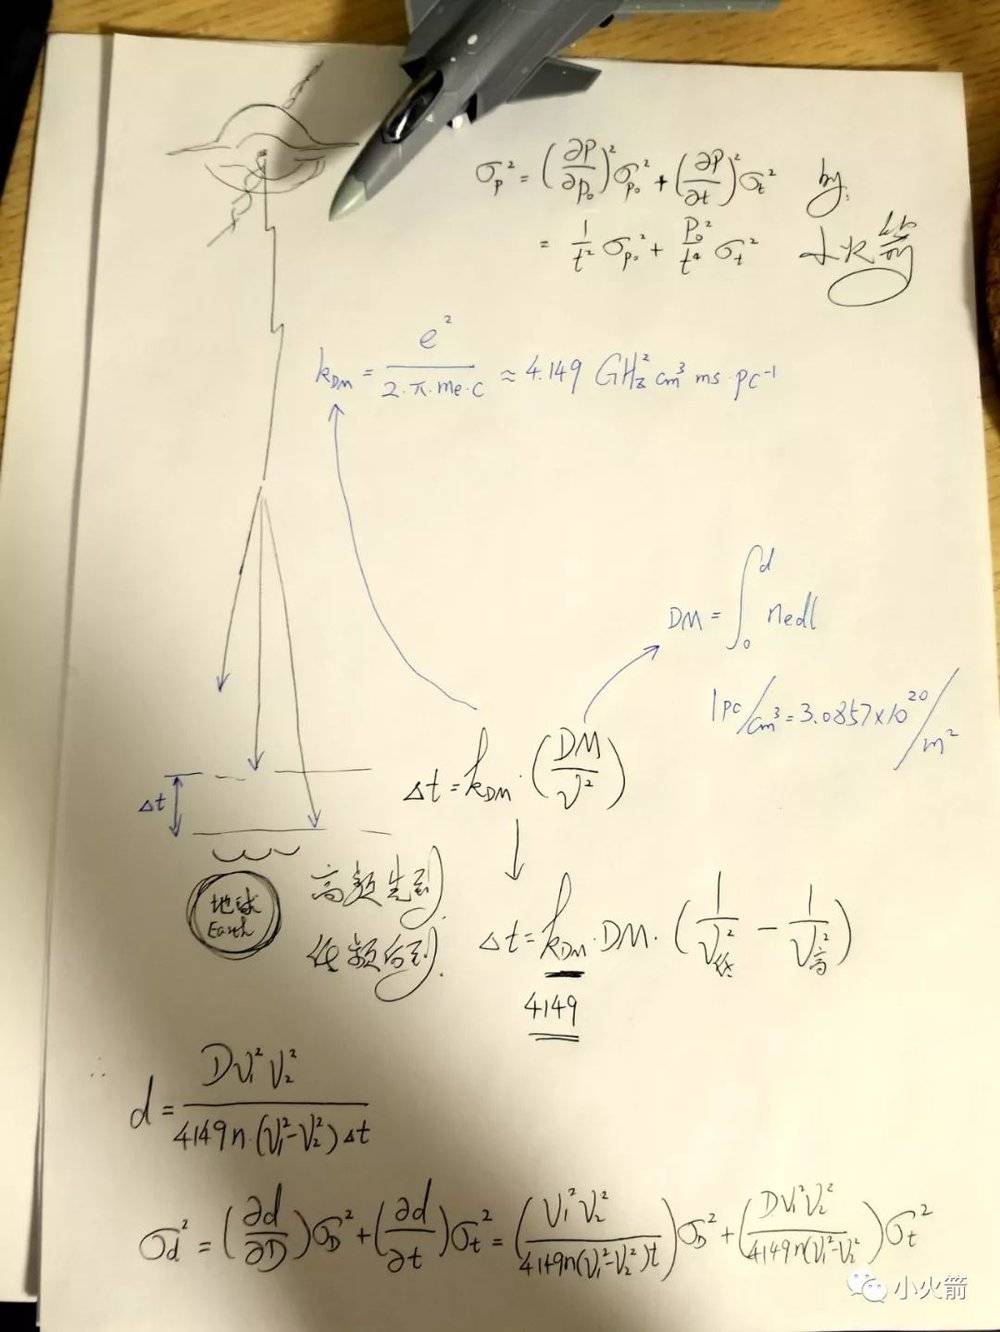 σ_p² = (∂P/∂P₀)² σ_p₀² + (∂P/∂t)² σ_t² by:
= 1/t² σ_p₀² + P₀²/t⁴ σ_t² 小火箭
k_DM = e²/(2·π·me·c) ≈ 4.149 GHz² cm³ ms·pc⁻¹
DM = ∫₀ᵈ nedl
1pc/cm³ = 3.0857×10²⁰/m²
Δt = k_DM · (DM/ν²)
Δt
高频先到
低频后到
地球
Earth
Δt = k_DM · DM · (1/ν低² − 1/ν高²)
4149
d = Dν₁²ν₂²/(4149n·(ν₁²−ν₂²)Δt)
σd² = (∂d/∂D)σ_D² + (∂d/∂t)σ_t² = (ν₁²ν₂²/(4149n(ν₁²−ν₂²)t))σ_D² + (Dν₁²ν₂²/(4149n(ν₁²−ν₂²))σ_t²
小火箭